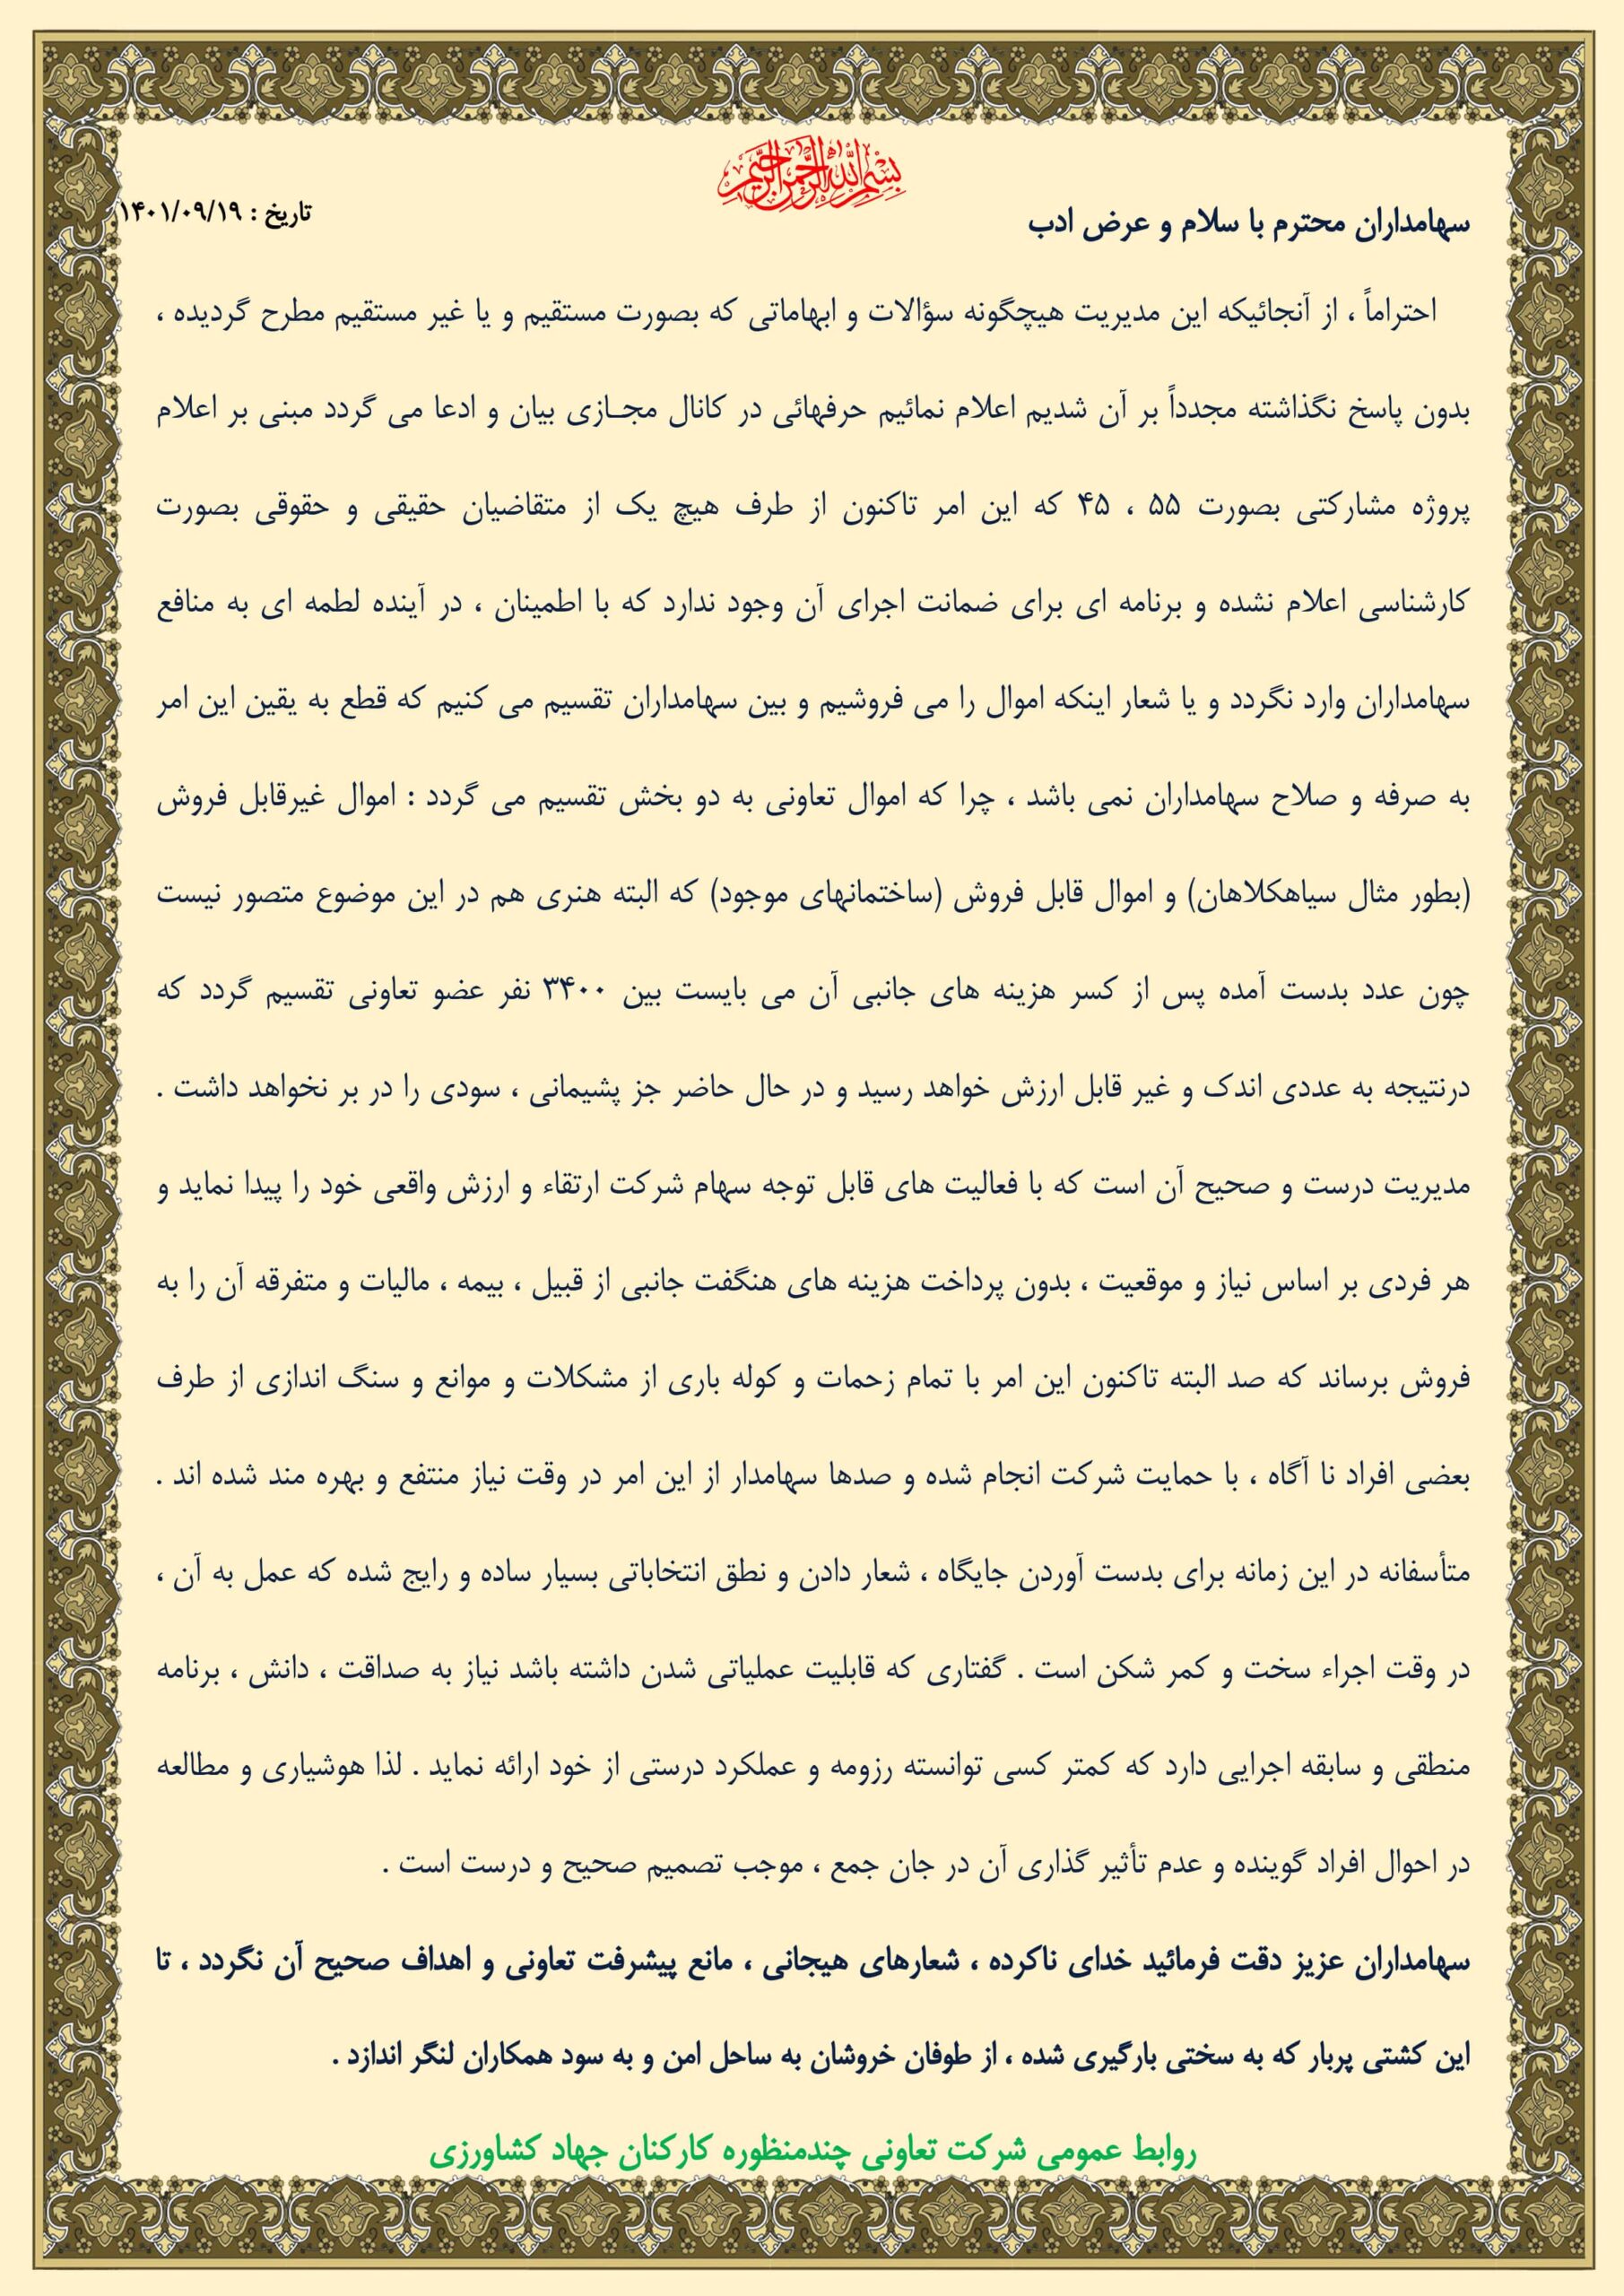 بسم الله الرحمن الرحیم
تاریخ : ۱۴۰۱/۰۹/۱۹
سهامداران محترم با سلام و عرض ادب
احتراماً ، از آنجائیکه این مدیریت هیچگونه سؤالات و ابهاماتی که بصورت مستقیم و یا غیر مستقیم مطرح گردیده ،
بدون پاسخ نگذاشته مجدداً بر آن شدیم اعلام نمائیم حرفهائی در کانال مجـازی بیان و ادعا می گردد مبنی بر اعلام
پروژه مشارکتی بصورت ۵۵ ، ۴۵ که این امر تاکنون از طرف هیچ یک از متقاضیان حقیقی و حقوقی بصورت
کارشناسی اعلام نشده و برنامه ای برای ضمانت اجرای آن وجود ندارد که با اطمینان ، در آینده لطمه ای به منافع
سهامداران وارد نگردد و یا شعار اینکه اموال را می فروشیم و بین سهامداران تقسیم می کنیم که قطع به یقین این امر
به صرفه و صلاح سهامداران نمی باشد ، چرا که اموال تعاونی به دو بخش تقسیم می گردد : اموال غیرقابل فروش
(بطور مثال سیاهکلاهان) و اموال قابل فروش (ساختمانهای موجود) که البته هنری هم در این موضوع متصور نیست
چون عدد بدست آمده پس از کسر هزینه های جانبی آن می بایست بین ۳۴۰۰ نفر عضو تعاونی تقسیم گردد که
درنتیجه به عددی اندک و غیر قابل ارزش خواهد رسید و در حال حاضر جز پشیمانی ، سودی را در بر نخواهد داشت .
مدیریت درست و صحیح آن است که با فعالیت های قابل توجه سهام شرکت ارتقاء و ارزش واقعی خود را پیدا نماید و
هر فردی بر اساس نیاز و موقعیت ، بدون پرداخت هزینه های هنگفت جانبی از قبیل ، بیمه ، مالیات و متفرقه آن را به
فروش برساند که صد البته تاکنون این امر با تمام زحمات و کوله باری از مشکلات و موانع و سنگ اندازی از طرف
بعضی افراد نا آگاه ، با حمایت شرکت انجام شده و صدها سهامدار از این امر در وقت نیاز منتفع و بهره مند شده اند .
متأسفانه در این زمانه برای بدست آوردن جایگاه ، شعار دادن و نطق انتخاباتی بسیار ساده و رایج شده که عمل به آن ،
در وقت اجراء سخت و کمر شکن است . گفتاری که قابلیت عملیاتی شدن داشته باشد نیاز به صداقت ، دانش ، برنامه
منطقی و سابقه اجرایی دارد که کمتر کسی توانسته رزومه و عملکرد درستی از خود ارائه نماید . لذا هوشیاری و مطالعه
در احوال افراد گوینده و عدم تأثیر گذاری آن در جان جمع ، موجب تصمیم صحیح و درست است .
سهامداران عزیز دقت فرمائید خدای ناکرده ، شعارهای هیجانی ، مانع پیشرفت تعاونی و اهداف صحیح آن نگردد ، تا
این کشتی پربار که به سختی بارگیری شده ، از طوفان خروشان به ساحل امن و به سود همکاران لنگر اندازد .
روابط عمومی شرکت تعاونی چندمنظوره کارکنان جهاد کشاورزی